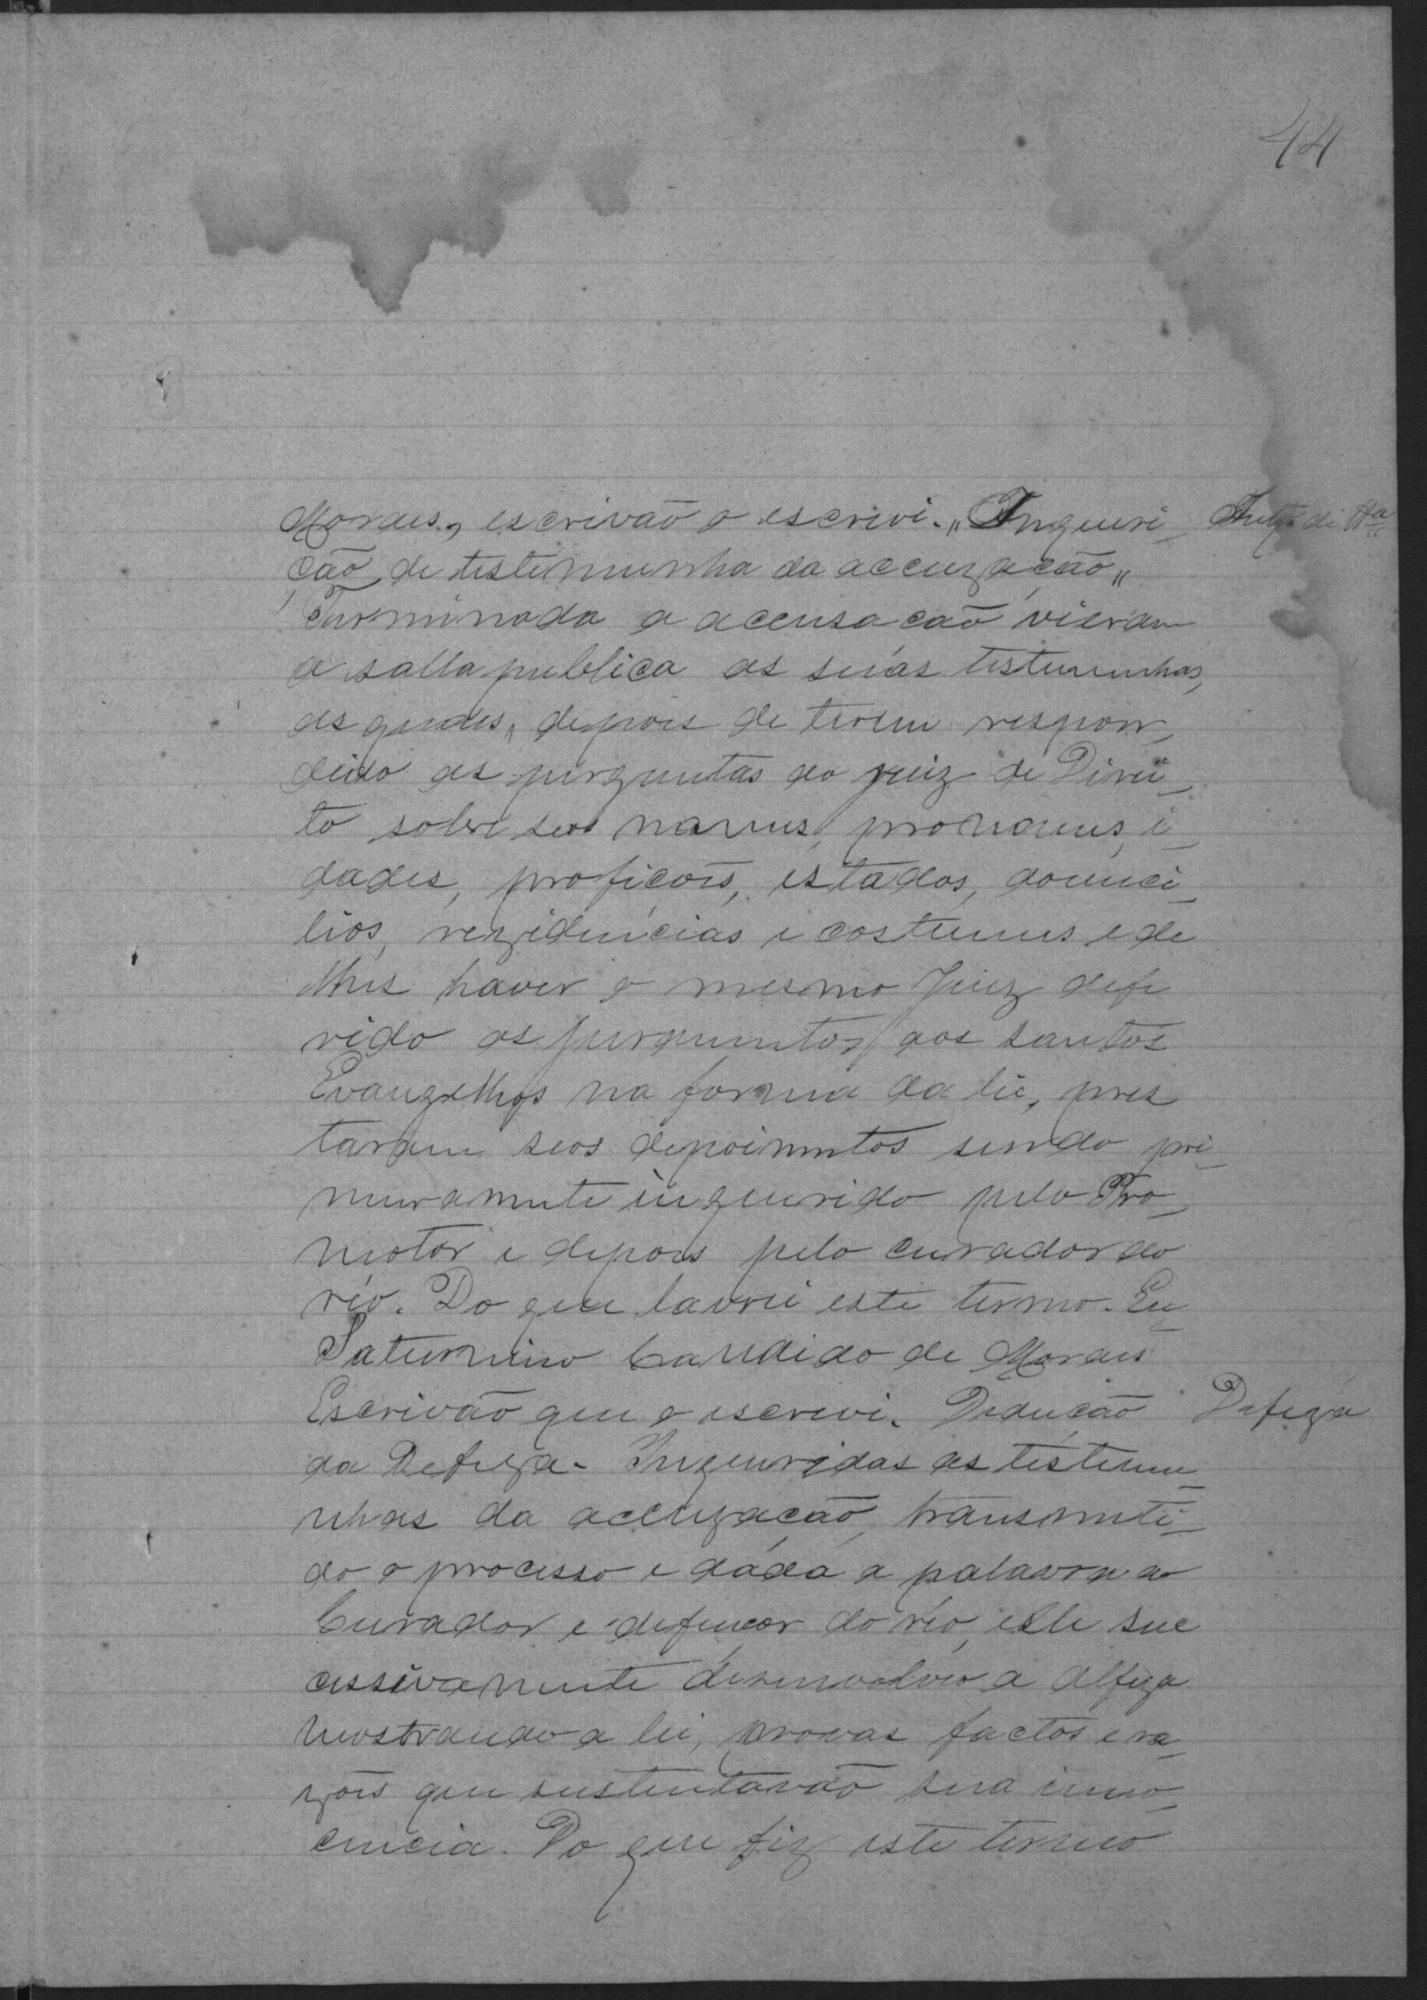 44
Moraes, escrivão o escrivi. „Inqueri Inqç di Ttªs
ção de testemunha da accuzação„
Terminada a accusacão vieram
a salla publica as suas testemunhas,
as quaes, depois de terem respon
dido as perguntas do juiz de Direi
to sobre seos nomes, pronomes, i
dades, proficoes, estados, domici
lios, rezidencias e costumes e de
lhes haver o mesmo Juiz defe
rido os juramentos aos santos
Evangelhos na forma da lei, pres
taram seos depoimentos sendo pri
meiramente inquerido pelo Pro
motor e depois pelo curador do
réo. Do que lavrei este termo. Eu
Saturnino Candido de Moraes
Escrivão que o escrevi. Deducão Defeza
da Defeza. Inqueridas as testemu
nhas da accuzacão, transmiti
do o processo e dada a palavra ao
Curador e defencor do réo, elle suc
cessivamente desenvolveo a defeza
mostrando a lei, provas factos e ra
zões que sustentavão sua inno
cencia. Do que fiz este termo